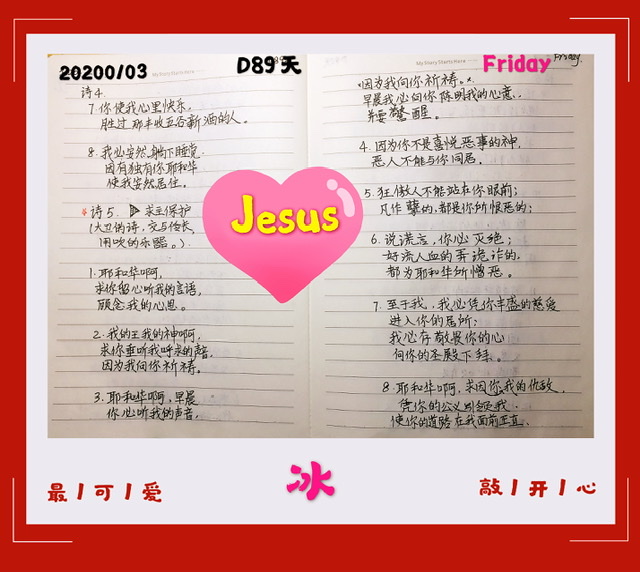 20200/03
D89天
Friday
My Story Starts Here
Friday.
诗4.
7.你使我心里快乐,
胜过那丰收五谷新酒的人。
8.我必安然躺下睡觉
因有独有你耶和华
使我安然居住。
诗5. ▶求主保护
(大卫的诗,交与伶长,
用吹的乐器。)
1.耶和华啊,
求你留心听我的言语,
顾念我的心思。
2.我的王我的神啊,
求你垂听我呼求的声音,
因为我向你祈祷。
3.耶和华啊,早晨
你必听我的声音,
因为我向你祈祷。
早晨我必向你陈明我的心意,
并要警醒。
4.因为你不是喜悦恶事的神,
恶人不能与你同居。
5.狂傲人不能站在你眼前;
凡作孽的,都是你所恨恶的;
6.说谎言,你必灭绝;
好流人血的弄诡诈的,
都为耶和华所憎恶。
7.至于我,我必凭你丰盛的慈爱
进入你的居所;
我必存敬畏你的心
向你的圣殿下拜。
8.耶和华啊,求因你我的仇敌,
凭你的公义引领我.
使你的道路在我面前正直
Jesus
最/可/爱
冰
敲/开/心